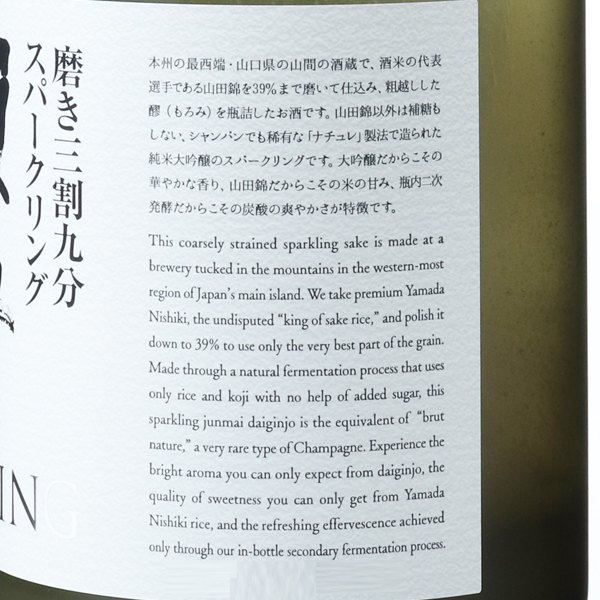 磨き三割九分
スパークリング
本州の最西端・山口県の山間の酒蔵で、酒米の代表
選手である山田錦を39%まで磨いて仕込み、粗越しした
醪（もろみ）を瓶詰したお酒です。山田錦以外は補糖も
しない、シャンパンでも稀有な「ナチュレ」製法で造られた
純米大吟醸のスパークリングです。大吟醸だからこその
華やかな香り、山田錦だからこその米の甘み、瓶内二次
発酵だからこその炭酸の爽やかさが特徴です。
This coarsely strained sparkling sake is made at a
brewery tucked in the mountains in the western-most
region of Japan's main island. We take premium Yamada
Nishiki, the undisputed “king of sake rice,” and polish it
down to 39% to use only the very best part of the grain.
Made through a natural fermentation process that uses
only rice and koji with no help of added sugar, this
sparkling junmai daiginjo is the equivalent of “brut
nature,” a very rare type of Champagne. Experience the
bright aroma you can only expect from daiginjo, the
quality of sweetness you can only get from Yamada
Nishiki rice, and the refreshing effervescence achieved
only through our in-bottle secondary fermentation process.
ING